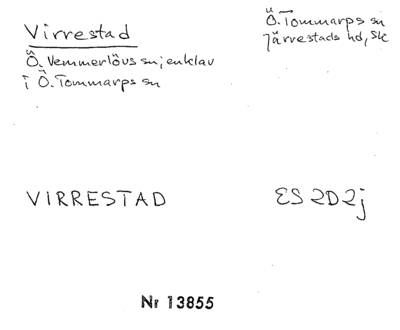 Virrestad
Ö. Vemmerlövs sn; enklav
i Ö. Tommarps sn
Ö. Tommarps sn
Järrestads hd, Sk
VIRRESTAD
ES 2D2j
Nr 13855